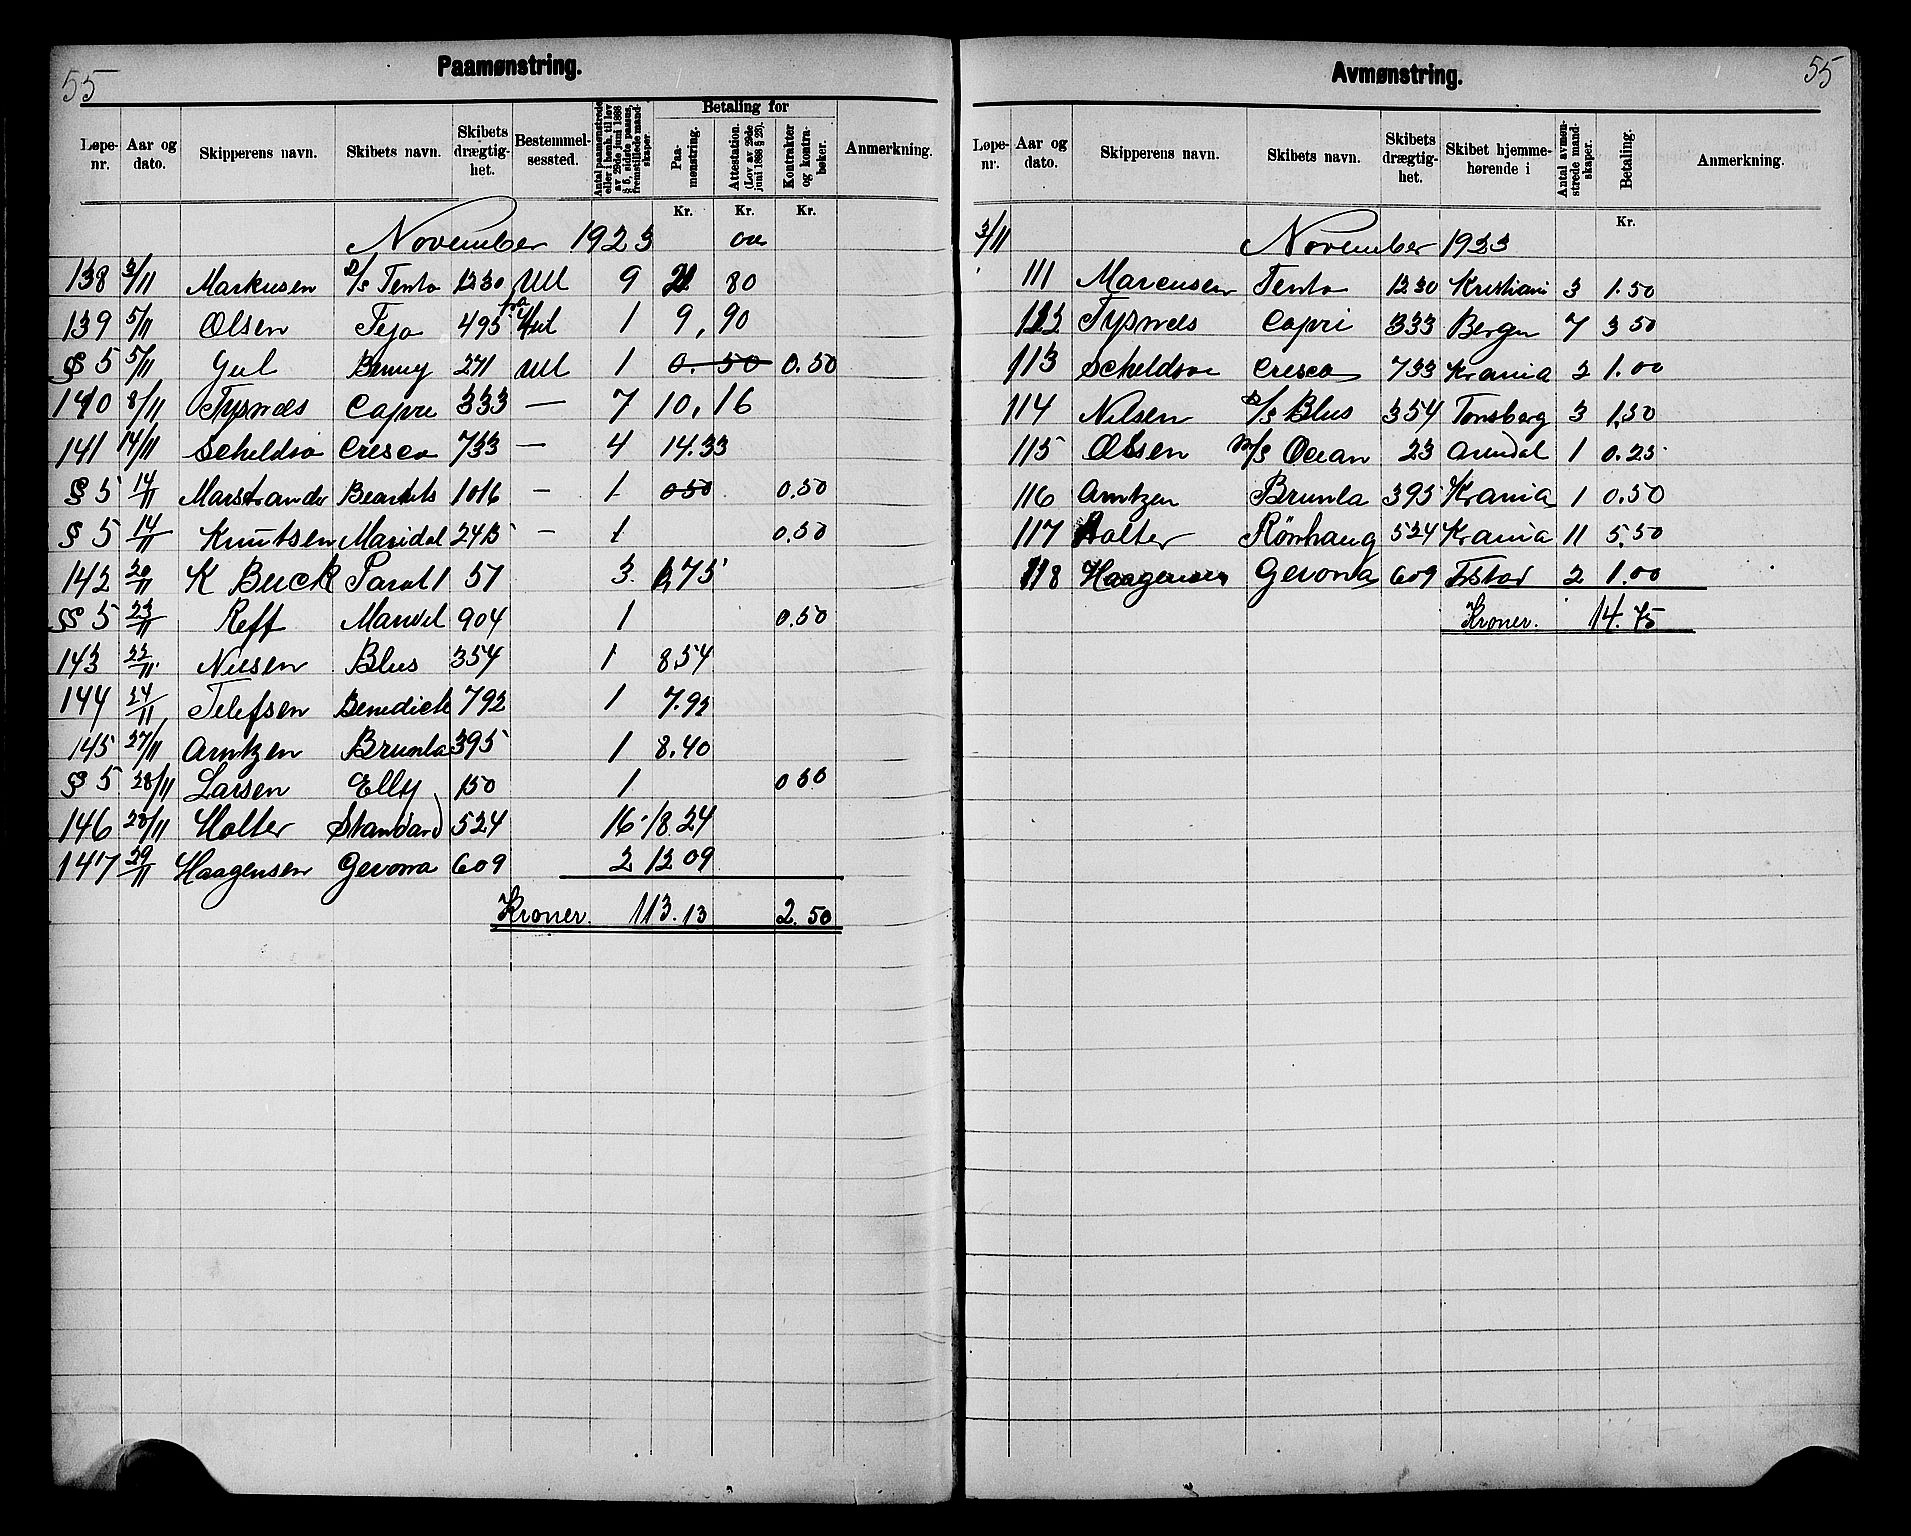 55
Paamønstring.
Løpe-nr. Aar og dato. Skipperens navn. Skibets navn. Skibets drægtig-het. Bestemmel-sessted. Antal paamønstrede eller i henh. til lov av 29de juni 1888 § 5, sidste passus, fremstillede mand-skaper. Betaling for Paa-mønstring. Attestation. (Lov av 29de juni 1888 § 23). Kontrakter og kontra-bøker. Anmerkning.
Kr. Kr. Kr.
November 1923
138 3/11 Markusen D/S Tento 1230 Utl 9 21 80
139 5/11 Olsen Tejo 495 1 9,90
§ 5 5/11 Gul Benny 271 Utl 1 0.50 0.50
140 8/11 Tysnes Capri 333 — 7 10,16
141 14/11 Scheldsø Cresco 733 — 4 14.33
§ 5 14/11 Marstrander 1016 — 1 0.50 0.50
§ 5 14/11 Knutsen Maridal 2415 — 1 0.50
142 20/11 K Buck Parat 1 57 3 2,75
§ 5 23/11 Reff 904 1 0.50
143 23/11 Nilsen Blus 354 1 8.54
144 24/11 Telefsen Benedicte 792 1 7.92
145 27/11 Arntzen Brunla 395 1 8.40
§ 5 28/11 Larsen Elly 150 1 0.50
146 28/11 Holter Standard 524 16 18.24
147 29/11 Haagensen Gevona 609 2 12 09
Kroner. 113.13 2.50
55
Avmønstring.
Løpe-nr. Aar og dato. Skipperens navn. Skibets navn. Skibets drægtig-het. Skibet hjemme-hørende i Antal avmøn-strede mand-skaper. Betaling. Anmerkning.
Kr.
3/11 November 1923
111 Marcussen Tento 1230 Kristiani 3 1.50
112 Tysnes Capri 333 Bergen 7 3 50
113 Scheldsø Cresco 733 Krania 2 1.00
114 Nilsen D/S Blus 354 Tønsberg 3 1.50
115 Olsen M/S Ocean 23 Arendal 1 0.25
116 Arntzen Brunla 395 Krania 1 0.50
117 Holter Rønhaug 524 Krania 11 5.50
118 Haagensen Gevona 609 2 1.00
Kroner. 14.75